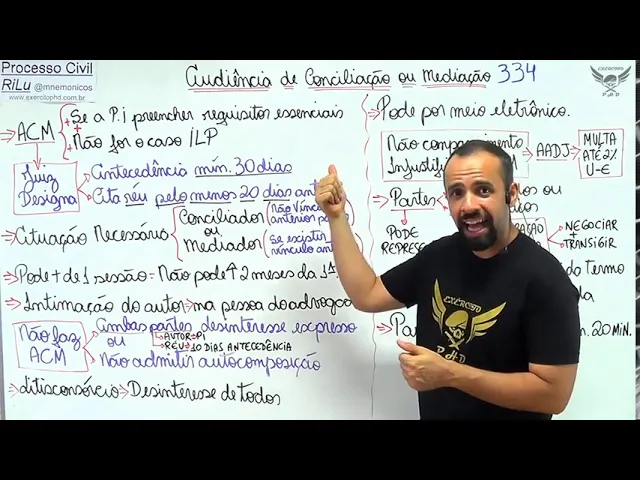 Processo Civil
RiLu @mnemonicos
www.exercitophd.com.br
Audiência de Conciliação ou Mediação 334
EXÉRCITO
PHD
⇒ ACM
+ Se a P.i preencher requisitos essenciais
+
+ Não for o caso iLP
Juiz
Designa
Antecedência mín. 30 dias
Cita réu pelo menos 20 dias
⇒ Atuação Necessário
Conciliador
ou
Mediador
não
anterior
se existir
vínculo
⇒ Pode + de 1 sessão = Não pode ↑ 2 meses da 1ª
⇒ Intimação do autor → na pessoa do
Não faz
ACM
Ambas partes desinteresse expresso
ou
AUTOR → Pi
RÉU → 10 DIAS ANTECEDÊNCIA
Não admitir autocomposição
⇒ Litisconsórcio → Desinteresse de todos
⇒ Pode por meio eletrônico.
Não comparecimento
AADJ
MULTA
ATÉ 2%
U-E
⇒ Partes
ou
PODE
NEGOCIAR
E
TRANSIGIR
do termo
20 MIN.
EXÉRCITO
PHD